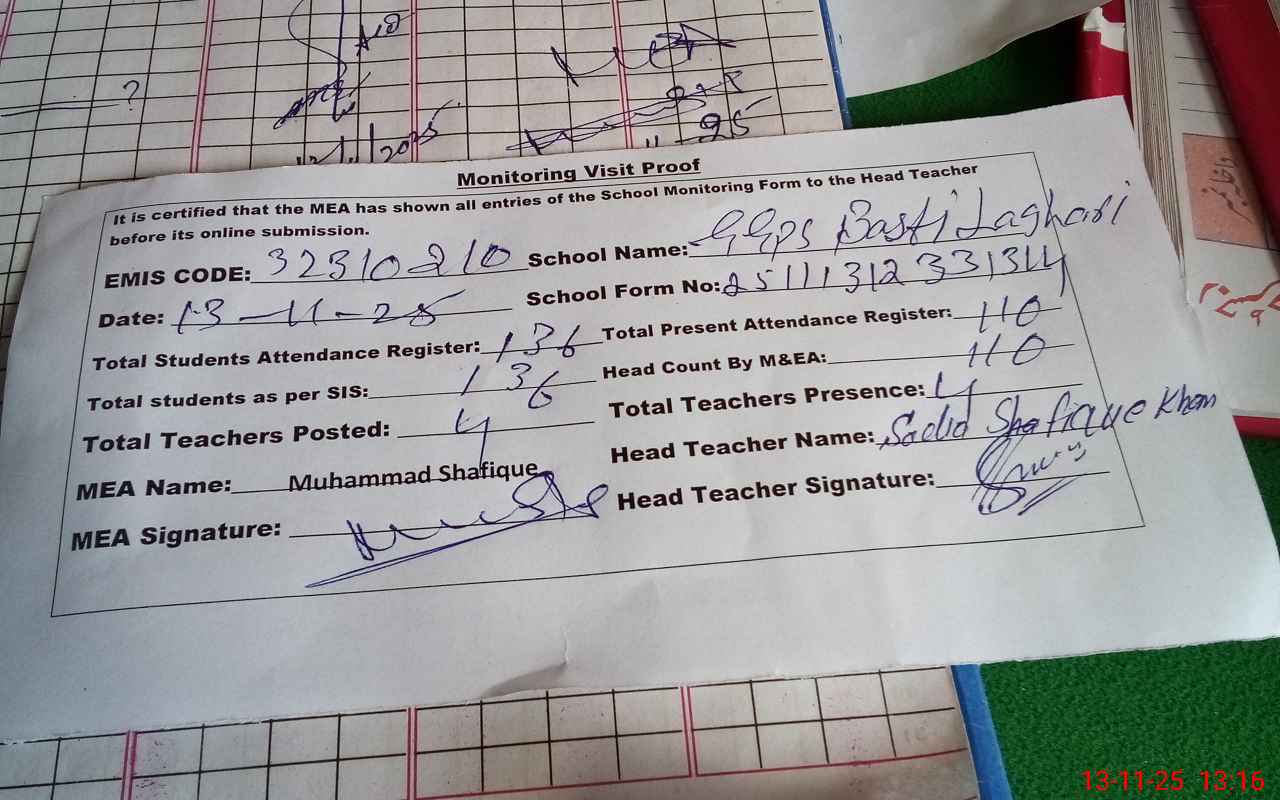 ?
12/11/2025
25
Monitoring Visit Proof
It is certified that the MEA has shown all entries of the School Monitoring Form to the Head Teacher
before its online submission.
EMIS CODE: 32310210 School Name: GGPS Basti Laghari
Date: 13-11-25 School Form No: 25111312331314
Total Students Attendance Register: 136 Total Present Attendance Register: 110
Total students as per SIS: 136 Head Count By M&EA: 110
Total Teachers Posted: 4 Total Teachers Presence: 4
MEA Name: Muhammad Shafique Head Teacher Name: Sadia Shafique Khan
MEA Signature: Head Teacher Signature:
13-11-25 13:16